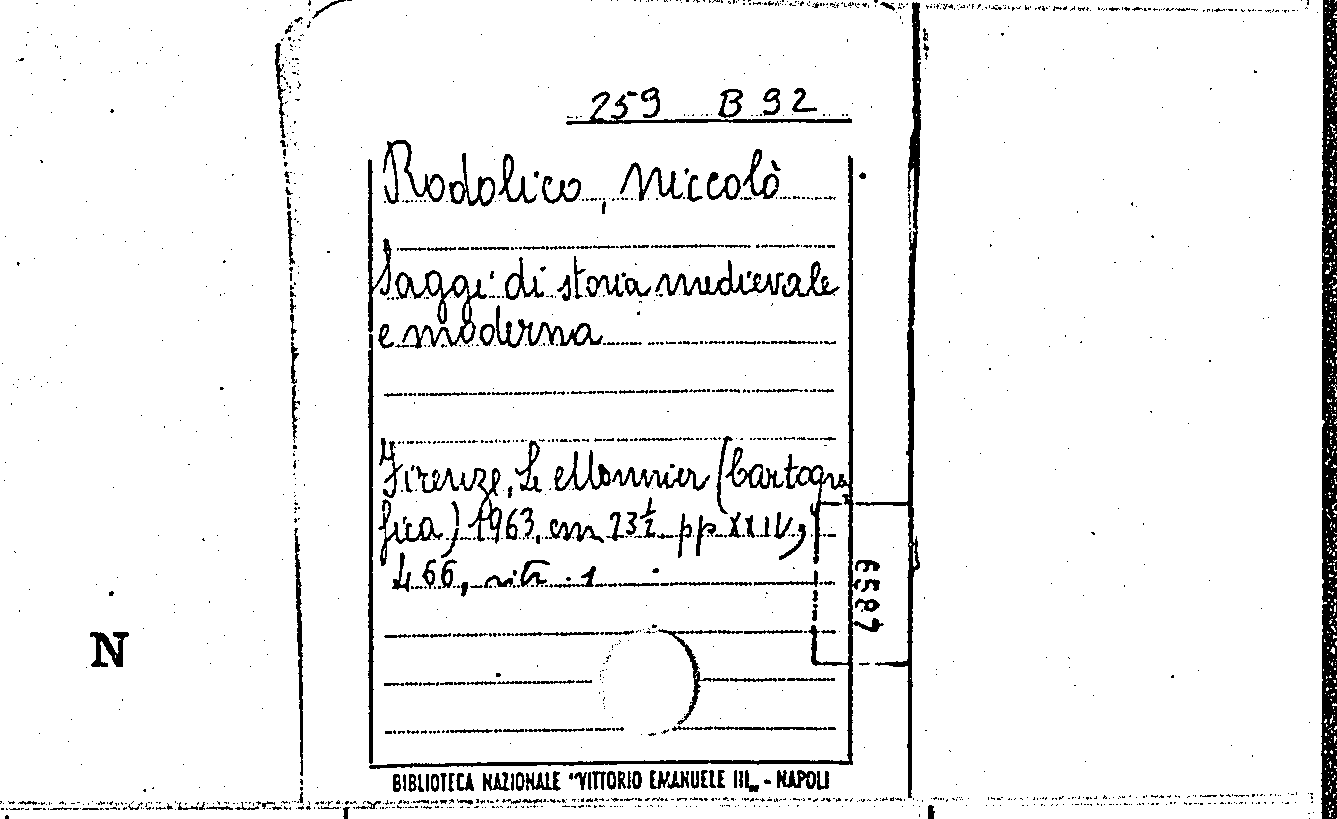 259 B 92
Rodolico, Niccolò
Saggi di storia medievale
e moderna
Firenze, Le Monnier (Cartogra
fica) 1963, cm 23½ pp XXIV,
466, ritr. 1
6587
N
BIBLIOTECA NAZIONALE "VITTORIO EMANUELE III„ - NAPOLI